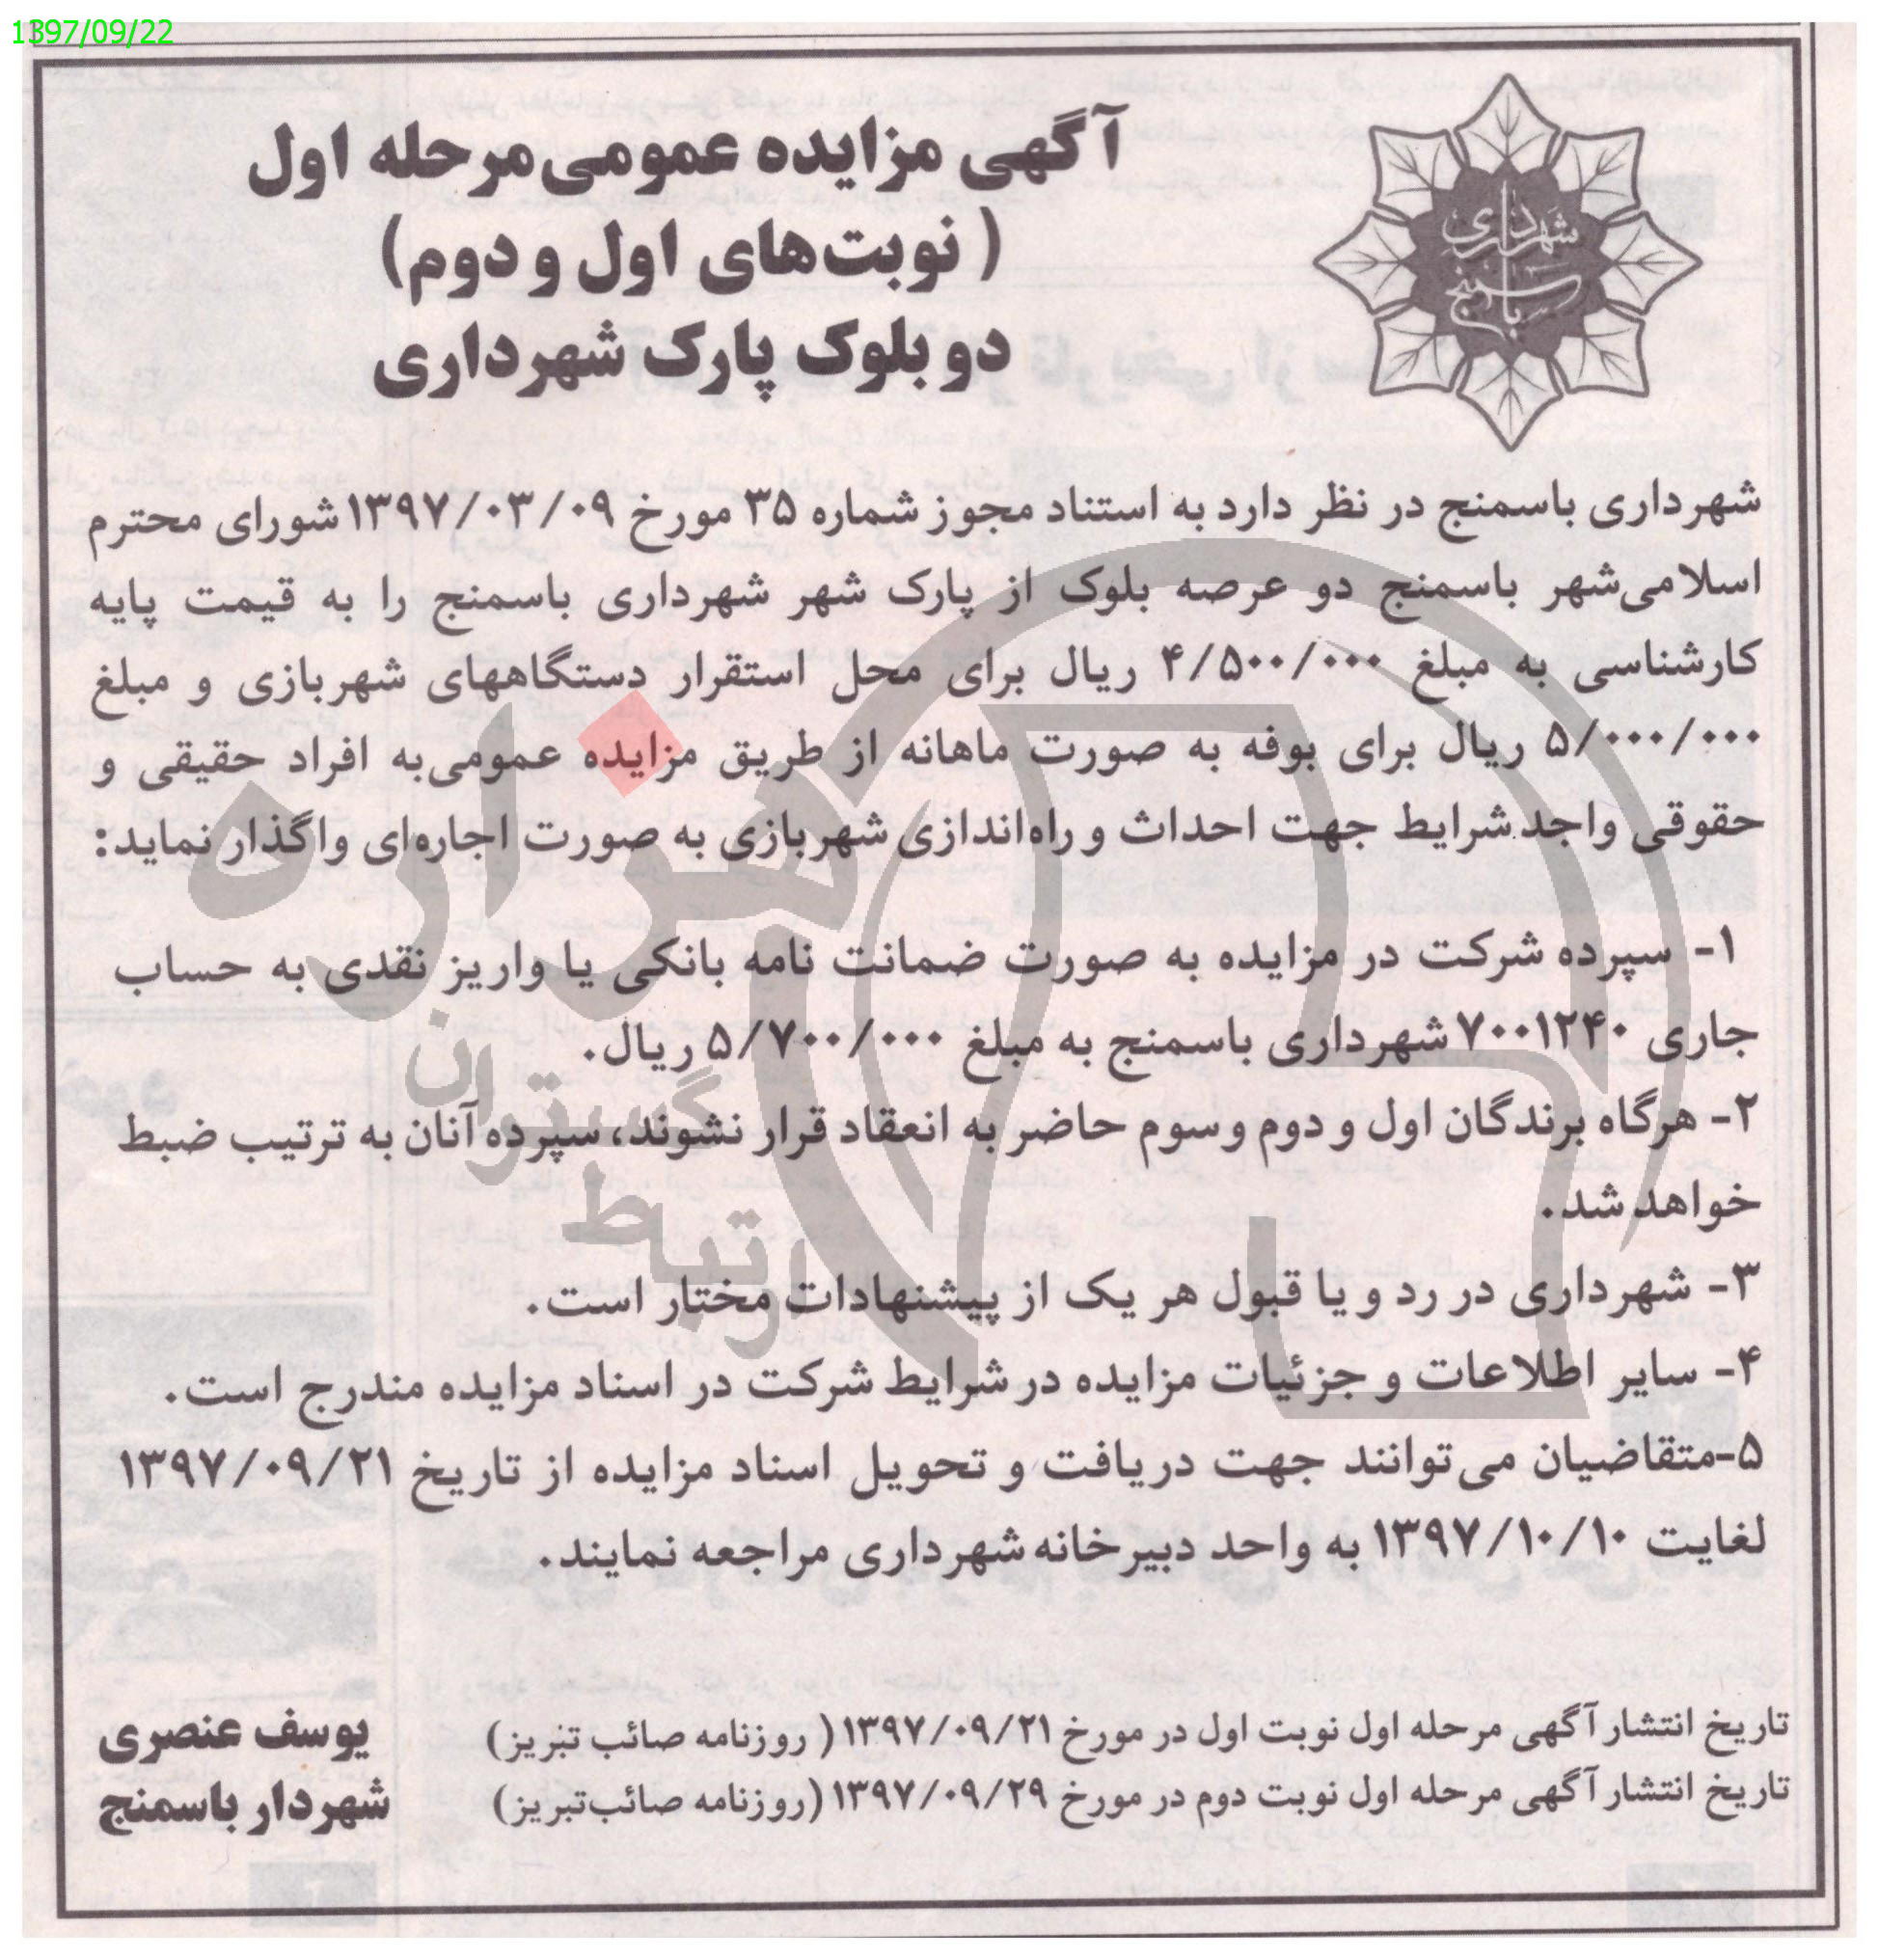 1397/09/22
شهرداری
باسمنج
آگهی مزایده عمومی مرحله اول
( نوبت‌های اول و دوم)
دو بلوک پارک شهرداری
شهرداری باسمنج در نظر دارد به استناد مجوز شماره ۳۵ مورخ ۱۳۹۷/۰۳/۰۹ شورای محترم
اسلامی‌شهر باسمنج دو عرصه بلوک از پارک شهر شهرداری باسمنج را به قیمت پایه
کارشناسی به مبلغ ۴/۵۰۰/۰۰۰ ریال برای محل استقرار دستگاههای شهربازی و مبلغ
۵/۰۰۰/۰۰۰ ریال برای بوفه به صورت ماهانه از طریق مزایده عمومی‌به افراد حقیقی و
حقوقی واجد شرایط جهت احداث و راه‌اندازی شهربازی به صورت اجاره‌ای واگذار نماید:
۱- سپرده شرکت در مزایده به صورت ضمانت نامه بانکی یا واریز نقدی به حساب
جاری ۷۰۰۱۲۴۰ شهرداری باسمنج به مبلغ ۵/۷۰۰/۰۰۰ ریال.
۲- هرگاه برندگان اول و دوم و سوم حاضر به انعقاد قرار نشوند، سپرده آنان به ترتیب ضبط
خواهد شد.
۳- شهرداری در رد و یا قبول هر یک از پیشنهادات مختار است.
۴- سایر اطلاعات و جزئیات مزایده در شرایط شرکت در اسناد مزایده مندرج است.
۵-متقاضیان می‌توانند جهت دریافت و تحویل اسناد مزایده از تاریخ ۱۳۹۷/۰۹/۲۱
لغایت ۱۳۹۷/۱۰/۱۰ به واحد دبیرخانه شهرداری مراجعه نمایند.
تاریخ انتشار آگهی مرحله اول نوبت اول در مورخ ۱۳۹۷/۰۹/۲۱ ( روزنامه صائب تبریز)
تاریخ انتشار آگهی مرحله اول نوبت دوم در مورخ ۱۳۹۷/۰۹/۲۹ (روزنامه صائب‌تبریز)
یوسف عنصری
شهردار باسمنج
هزاره
گستران
ارتباط